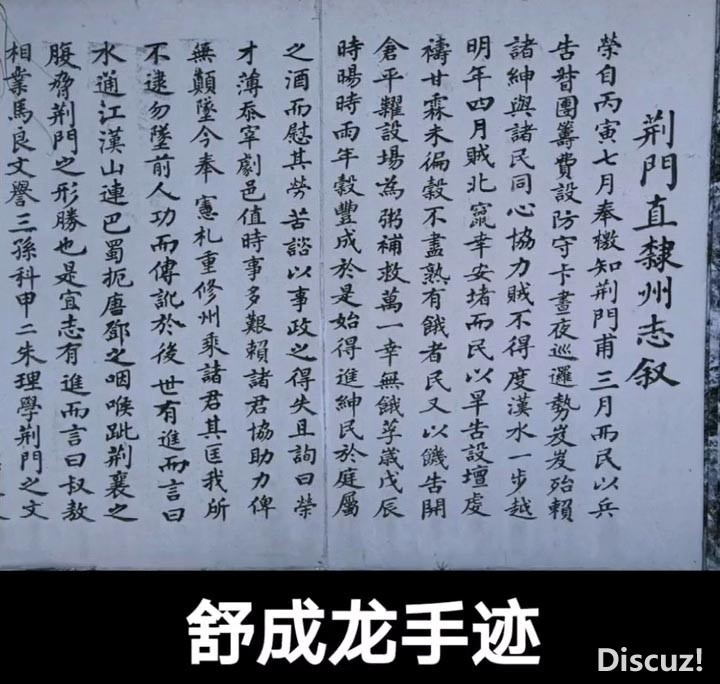 荆門直隸州志叙
榮自丙寅七月奉檄知荆門甫三月而民以兵
告督團籌費設防守卡晝夜巡邏勢岌岌殆賴
諸紳與諸民同心協力賊不得度漢水一步越
明年四月賊北竄幸安堵而民以旱告設壇虔
禱甘霖未徧穀不盡熟有餓者民又以饑告開
倉平糶設場為粥補救萬一幸無餓莩歲戊辰
時暘時雨年穀豐成於是始得進紳民於庭屬
之酒而慰其勞苦諮以事政之得失且詢曰榮
才薄忝宰劇邑值時事多艱賴諸君協助力俾
無顛墜今奉 憲札重修州乘諸君其匡我所
不逮勿墜前人功而傳訛於後世有進而言曰
水通江漢山連巴蜀扼唐鄧之咽喉跐荆襄之
腹脅荆門之形勝也是宜志有進而言曰叔敖
相業馬良文譽三孫科甲二朱理學荆門之文
舒成龙手迹
Discuz!